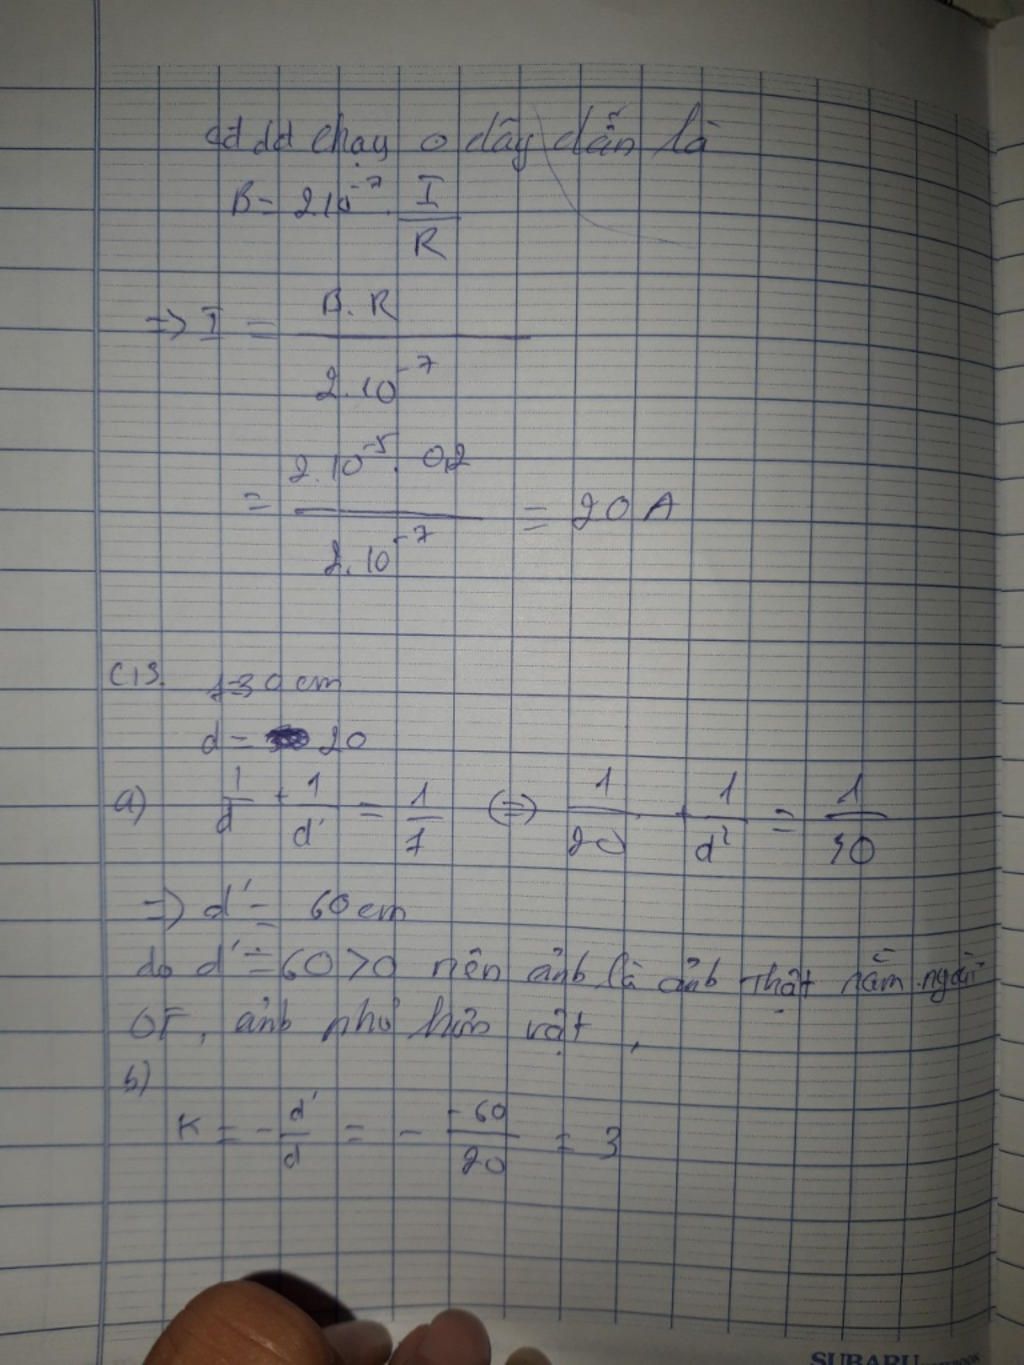 cđ dđ chạy o dây dẫn là
B = 2.10^-7 . I/R
=> I = B.R / 2.10^-7
= 2.10^-5 . 0,2 / 2.10^-7 = 20 A
C13. f=30 cm
d = 20
a) 1/d + 1/d' = 1/f (=) 1/20 + 1/d' = 1/30
=) d' = 60 cm
do d' = 60 > 0 nên ảnh là ảnh thật nằm ngoài
OF, ảnh nhỏ hơn vật,
b)
K = - d'/d = - -60/20 = 3
SUBARU